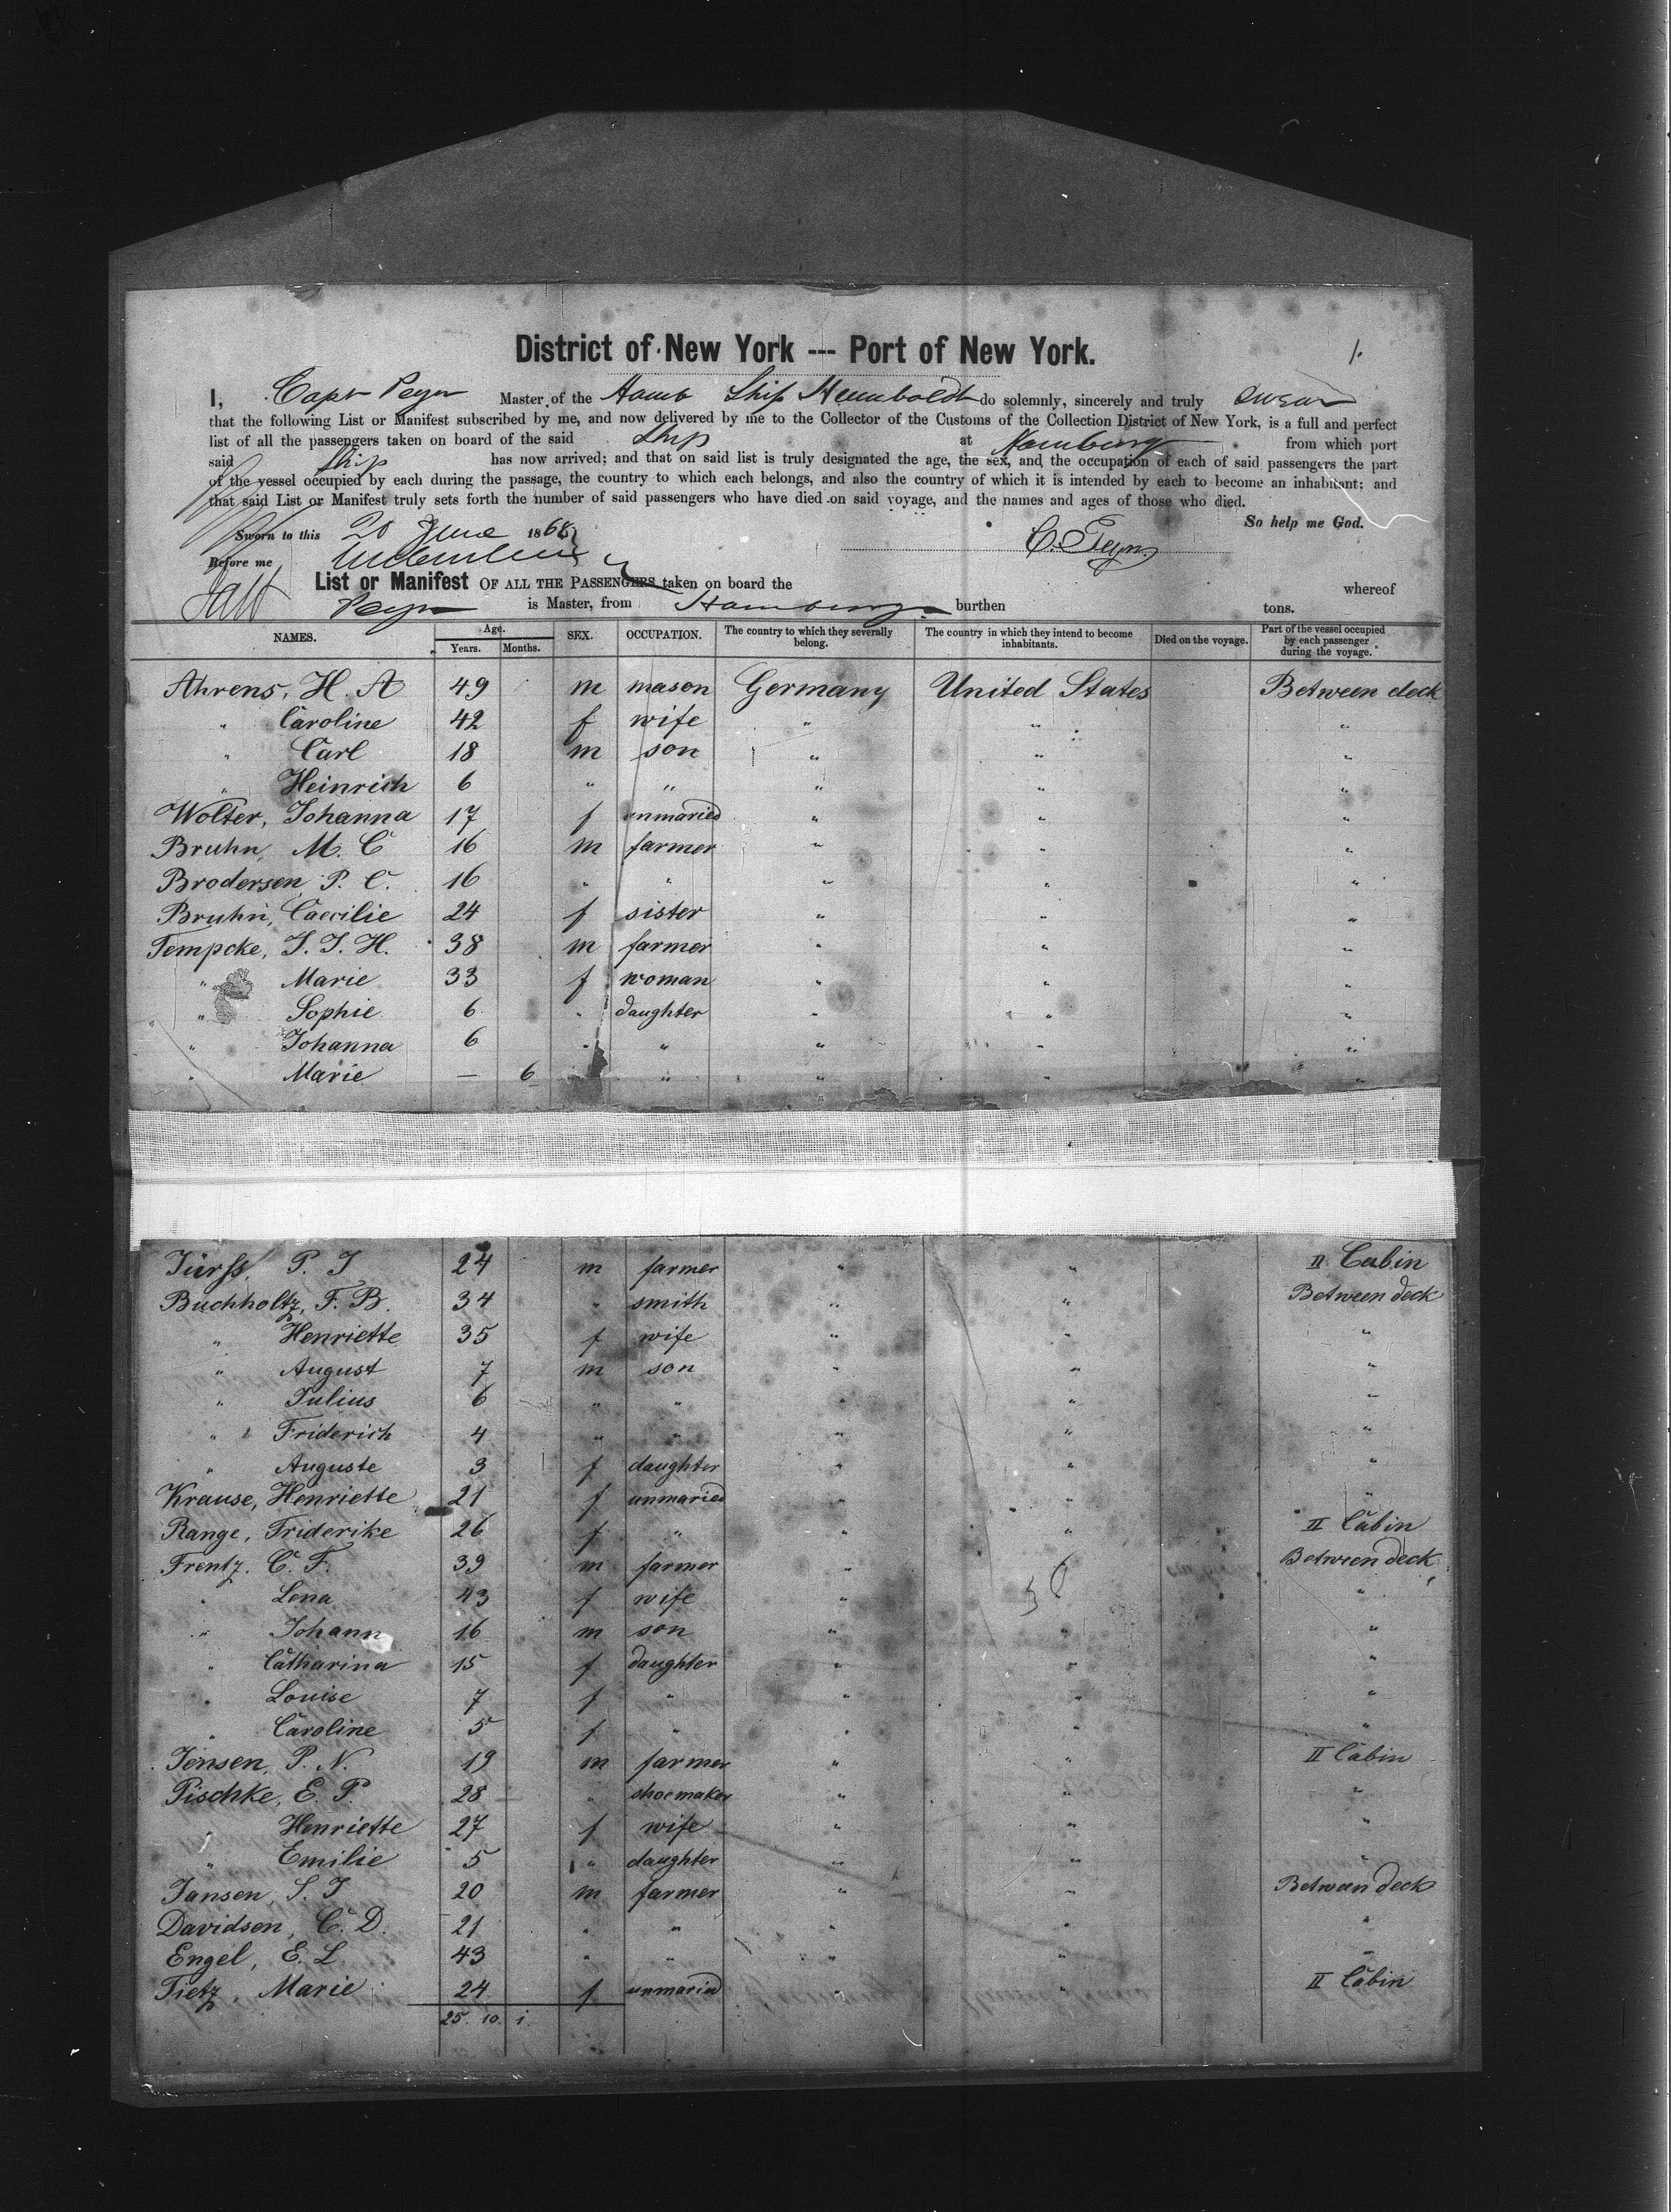 District of New York --- Port of New York.
1.
I, Capt Peyn Master of the Hamb Ship Humboldt do solemnly, sincerely and truly swear
that the following List or Manifest subscribed by me, and now delivered by me to the Collector of the Customs of the Collection District of New York, is a full and perfect
list of all the passengers taken on board of the said Ship at Hamburg from which port
said Ship has now arrived; and that on said list is truly designated the age, the sex, and the occupation of each of said passengers the part
of the vessel occupied by each during the passage, the country to which each belongs, and also the country of which it is intended by each to become an inhabitant; and
that said List or Manifest truly sets forth the number of said passengers who have died on said voyage, and the names and ages of those who died.
So help me God.
Sworn to this 20 June 1868
C. Peyn
Before me
List or Manifest OF ALL THE PASSENGERS taken on board the whereof
Peyn is Master, from Hamburg burthen tons.
NAMES. Age. Years. Months. SEX. OCCUPATION. The country to which they severally belong. The country in which they intend to become inhabitants. Died on the voyage. Part of the vessel occupied by each passenger during the voyage.
Ahrens, H. A 49 m mason Germany United States Between deck
" Caroline 42 f wife " " "
" Carl 18 m son " " "
" Heinrich 6 " " " " "
Wolter, Johanna 17 f unmaried " " "
Bruhn, M. C 16 m farmer " " "
Brodersen, P. C. 16 " " " " "
Bruhn, Caecilie 24 f sister " " "
Tempcke, J. J. H. 38 m farmer " " "
" Marie 33 f woman " " "
" Sophie 6 " daughter " " "
" Johanna 6 " " " " "
" Marie — 6 " " " "
Jürss, P. J 24 m farmer " " II Cabin
Buchholtz, F. B. 34 " smith " " Between deck
" Henriette 35 f wife " " "
" August 7 m son " " "
" Julius 6 " " " " "
" Friderich 4 " " " " "
" Auguste 3 f daughter " " "
Krause, Henriette 21 f unmaried " " "
Range, Friderike 26 f " " " II Cabin
Frentz. C. F. 39 m farmer " Between deck
" Lena 43 f wife " "
" Johann 16 m son " " "
" Catharina 15 f daughter " " "
" Louise 7 f " " " "
" Caroline 5 f " " " "
Jensen, P. N. 19 m farmer " " II Cabin
Pischke, E. P. 28 " shoemaker " " "
" Henriette 27 f wife " " "
" Emilie 5 " daughter " " "
Jansen, S. J 20 m farmer " " Between deck
Davidsen, C. D. 21 " " " " "
Engel, E. L 43 " " " " "
Tietz, Marie 24 f unmaried " " II Cabin
25. 10. 1.